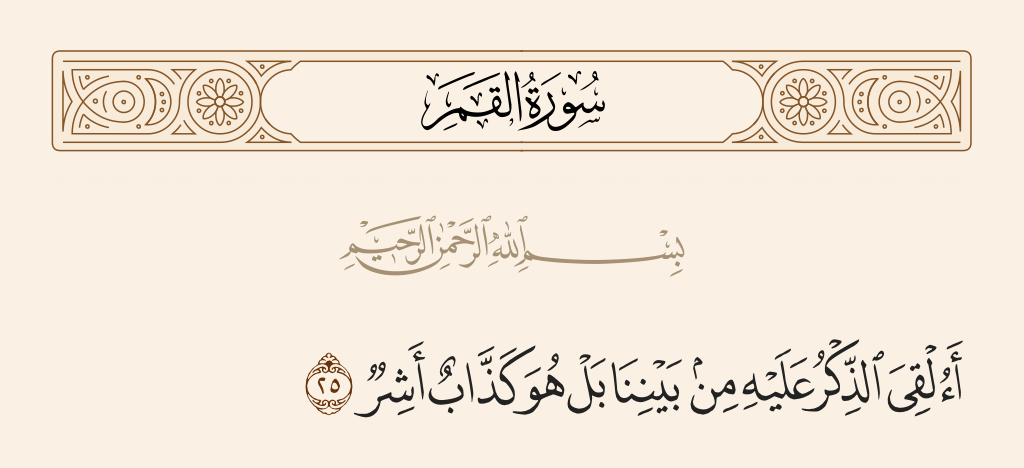 سُورَةُ القَمَرِ
بِسْمِ ٱللَّهِ ٱلرَّحْمَٰنِ ٱلرَّحِيمِ
أَءُلْقِىَ ٱلذِّكْرُ عَلَيْهِ مِنۢ بَيْنِنَا بَلْ هُوَ كَذَّابٌ أَشِرٌۭ ٢٥